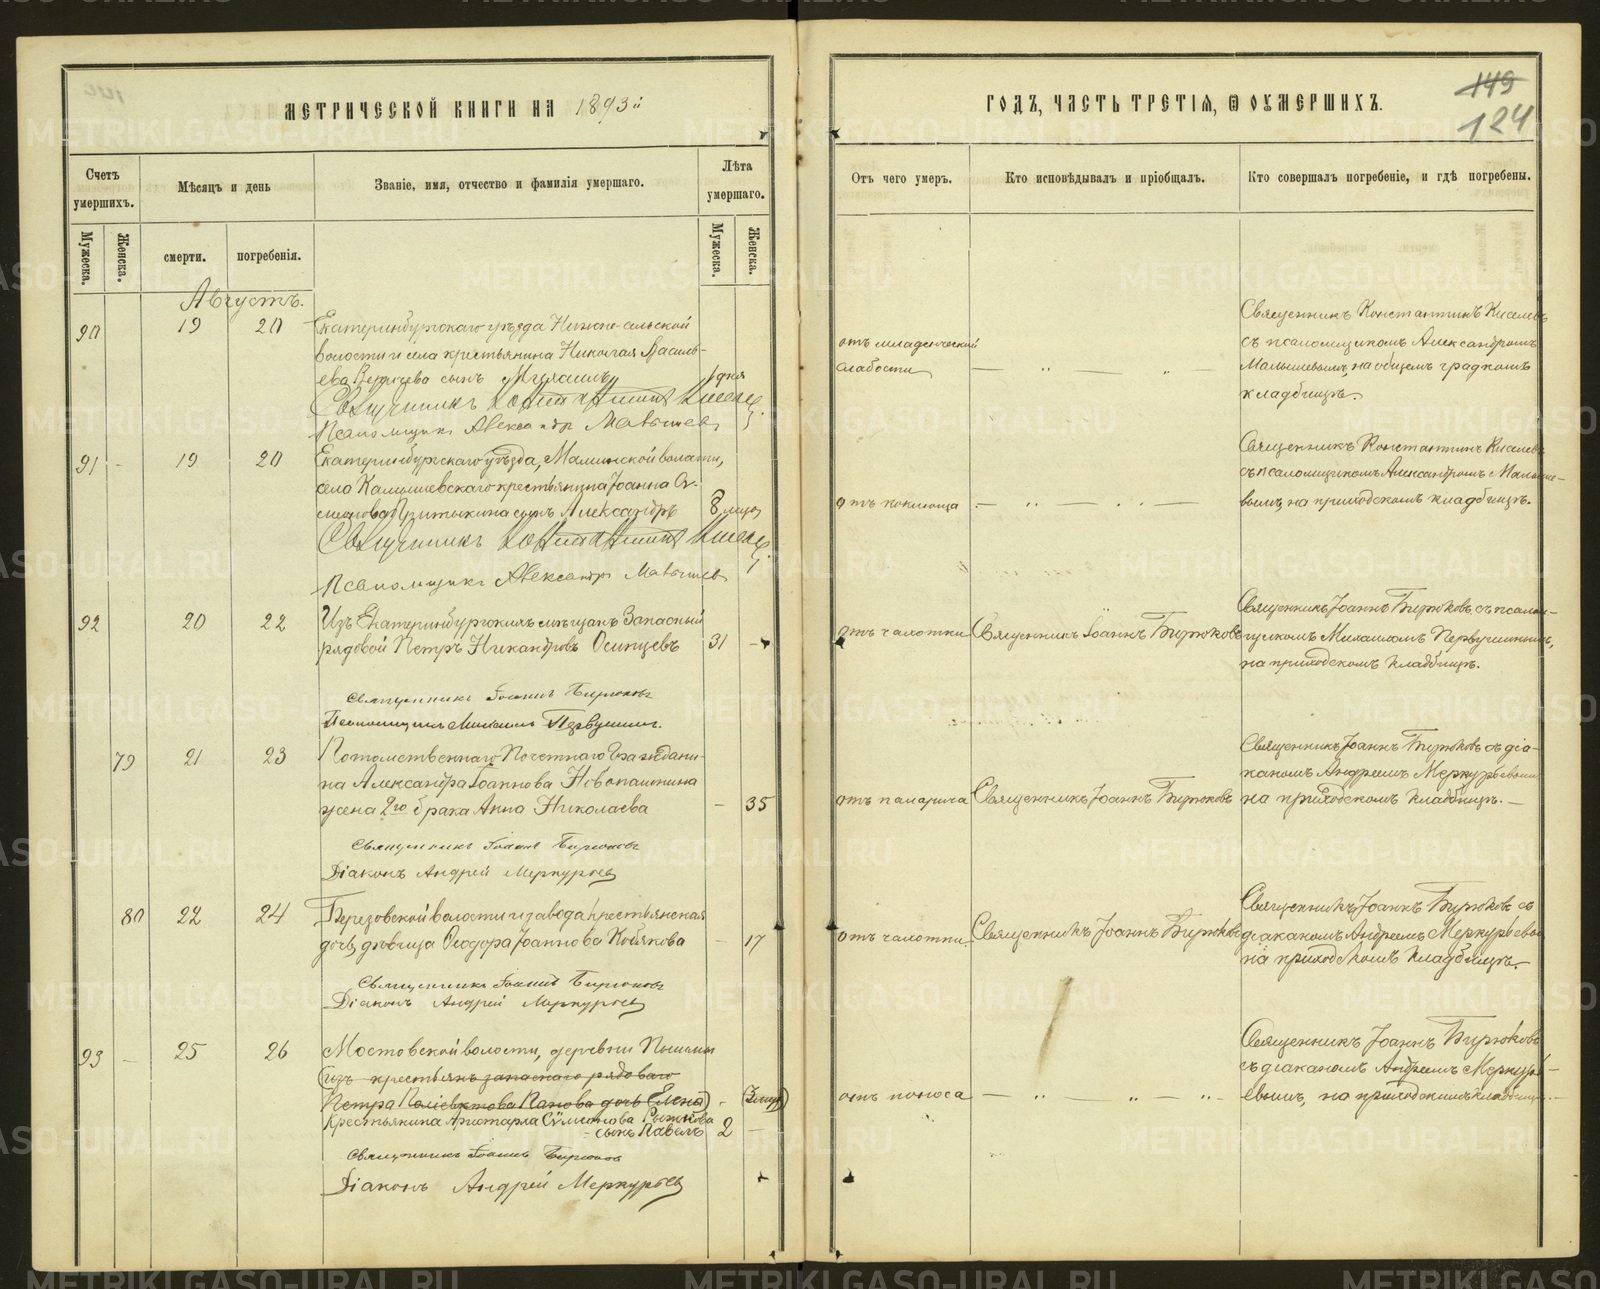 МЕТРИЧЕСКОЙ КНИГИ НА 1893й
ГОДЪ, ЧАСТЬ ТРЕТІЯ, Ѿ ОУМЕРШИХЪ.
149
124
Счетъ умершихъ.
Мѣсяцъ и день
Званіе, имя, отчество и фамилія умершаго.
Лѣта умершаго.
Отъ чего умеръ.
Кто исповѣдывалъ и пріобщалъ.
Кто совершалъ погребеніе, и гдѣ погребены.
Мужеска.
Женска.
смерти.
погребенія.
Мужеска.
Женска.
Августъ.
90 19 20 Екатеринбургскаго уѣзда Нижне-сельской
волости и села крестьянина Николая Василь-
ева сынъ 1 дня
Священникъ Константинъ Киселевъ
Псаломщикъ Александръ Малышевъ
отъ младенческой
слабости
Священникъ Константинъ Киселевъ
съ псаломщикомъ Александромъ
Малышевымъ, на общемъ градскомъ
кладбищѣ.
91 - 19 20 Екатеринбургскаго уѣзда, Маминской волости,
села Камышевскаго крестьянина Іоанна
сынъ Александръ 8 мѣсяц
Священникъ Константинъ Киселевъ
Псаломщикъ Александръ Малышевъ
отъ коклюша
Священникъ Константинъ Киселевъ
съ псаломщикомъ Александромъ Малыше-
вымъ, на приходскомъ кладбищѣ.
92 20 22 Изъ Екатеринбургскихъ мѣщанъ Запасный
рядовой Петръ Никандровъ Осинцевъ 31 -
Священникъ Іоаннъ Бирюковъ
Псаломщикъ Михаилъ Первушинъ.
отъ чахотки
Священникъ Іоаннъ Бирюковъ
Священникъ Іоаннъ Бирюковъ съ псалом-
щикомъ Михаиломъ Первушинымъ,
на приходскомъ кладбищѣ.
79 21 23 Потомственнаго Почетнаго Граждани-
на Александра Іоаннова Новопашина
жена 2го брака Анна Николаева - 35
Священникъ Іоаннъ Бирюковъ
Діаконъ Андрей Меркурьевъ
отъ паралича
Священникъ Іоаннъ Бирюковъ
Священникъ Іоаннъ Бирюковъ съ діа-
кономъ Андреемъ Меркурьевымъ
на приходскомъ кладбищѣ. -
80 22 24 Березовской волости и завода крестьянская
дочь, дѣвица Ѳеодора Іоаннова Кобякова - 17
Священникъ Іоаннъ Бирюковъ
Діаконъ Андрей Меркурьевъ
отъ чахотки
Священникъ Іоаннъ Бирюковъ
Священникъ Іоаннъ Бирюковъ съ
діакономъ Андреемъ Меркурьевымъ
на приходскомъ кладбищѣ.
93 - 25 26 Мостовской волости, деревни Пышмы
(изъ крестьянъ запаснаго рядоваго
Петра Поліевктова Панова дочь Елена) -
крестьянина Аристарха Сѵмеонова Рыжкова
- сынъ Павелъ 2 -
Священникъ Іоаннъ Бирюковъ
Діаконъ Андрей Меркурьевъ
отъ поноса
Священникъ Іоаннъ Бирюковъ
съ діакономъ Андреемъ Меркурь-
евымъ, на приходскомъ кладбищѣ.
METRIKI.GASO-URAL.RU